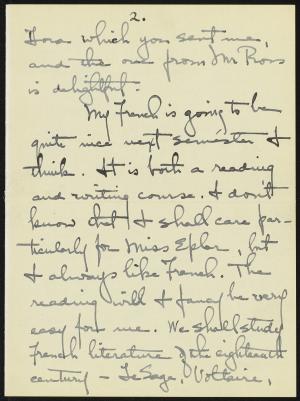 2.
Flora which you sent me,
and the one from Mr Ross
is delightful.
My French is going to be
quite nice next semester I
think. It is both a reading
and writing course. I don't
know that I shall care par-
ticularly for Miss Epler, but
I always like French. The
reading will I fancy be very
easy for me. We shall study
French literature of the eighteenth
century - LeSage, Voltaire,